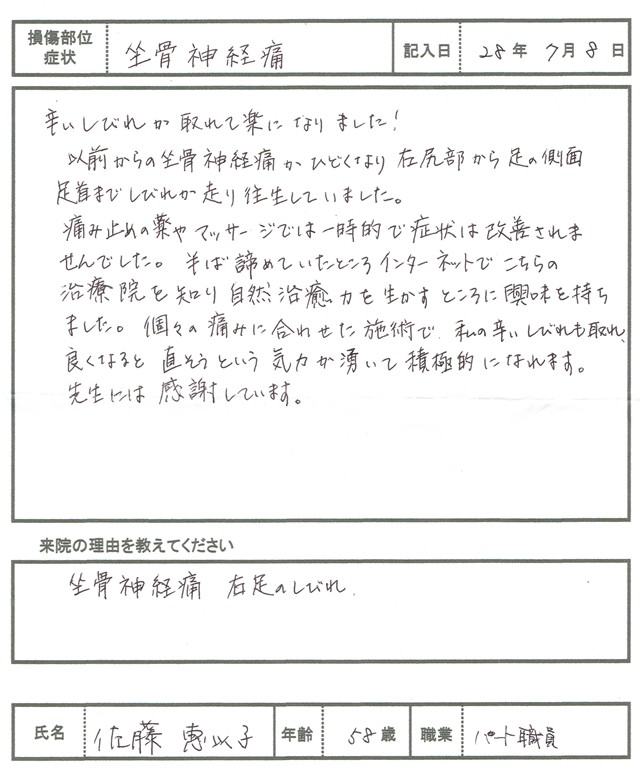 損傷部位
症状
坐骨神経痛
記入日 28年 7月8日
辛いしびれが取れて楽になりました!
以前からの坐骨神経痛がひどくなり右尻部から足の側面
足首までしびれが走り往生していました。
痛み止めの薬やマッサージでは一時的で症状は改善されま
せんでした。半ば諦めていたところインターネットでこちらの
治療院を知り自然治癒力を生かすところに興味を持ち
ました。個々の痛みに合わせた施術で、私の辛いしびれも取れ、
良くなると直そうという気力が湧いて積極的になれます。
先生には感謝しています。
来院の理由を教えてください
坐骨神経痛 右足のしびれ
氏名 佐藤 恵以子 年齢 58歳 職業 パート職員